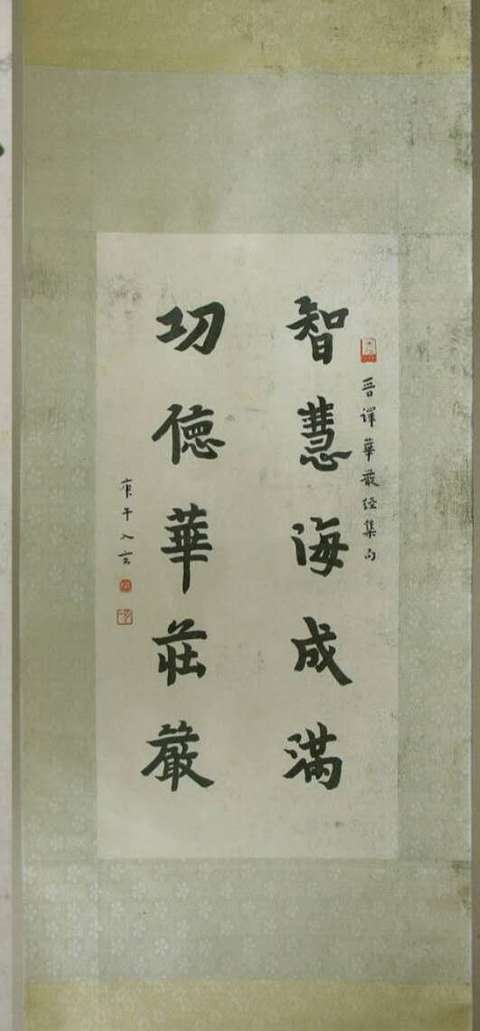 晉譯華嚴經集句
智慧海成滿
功德華莊嚴
庚午入玄